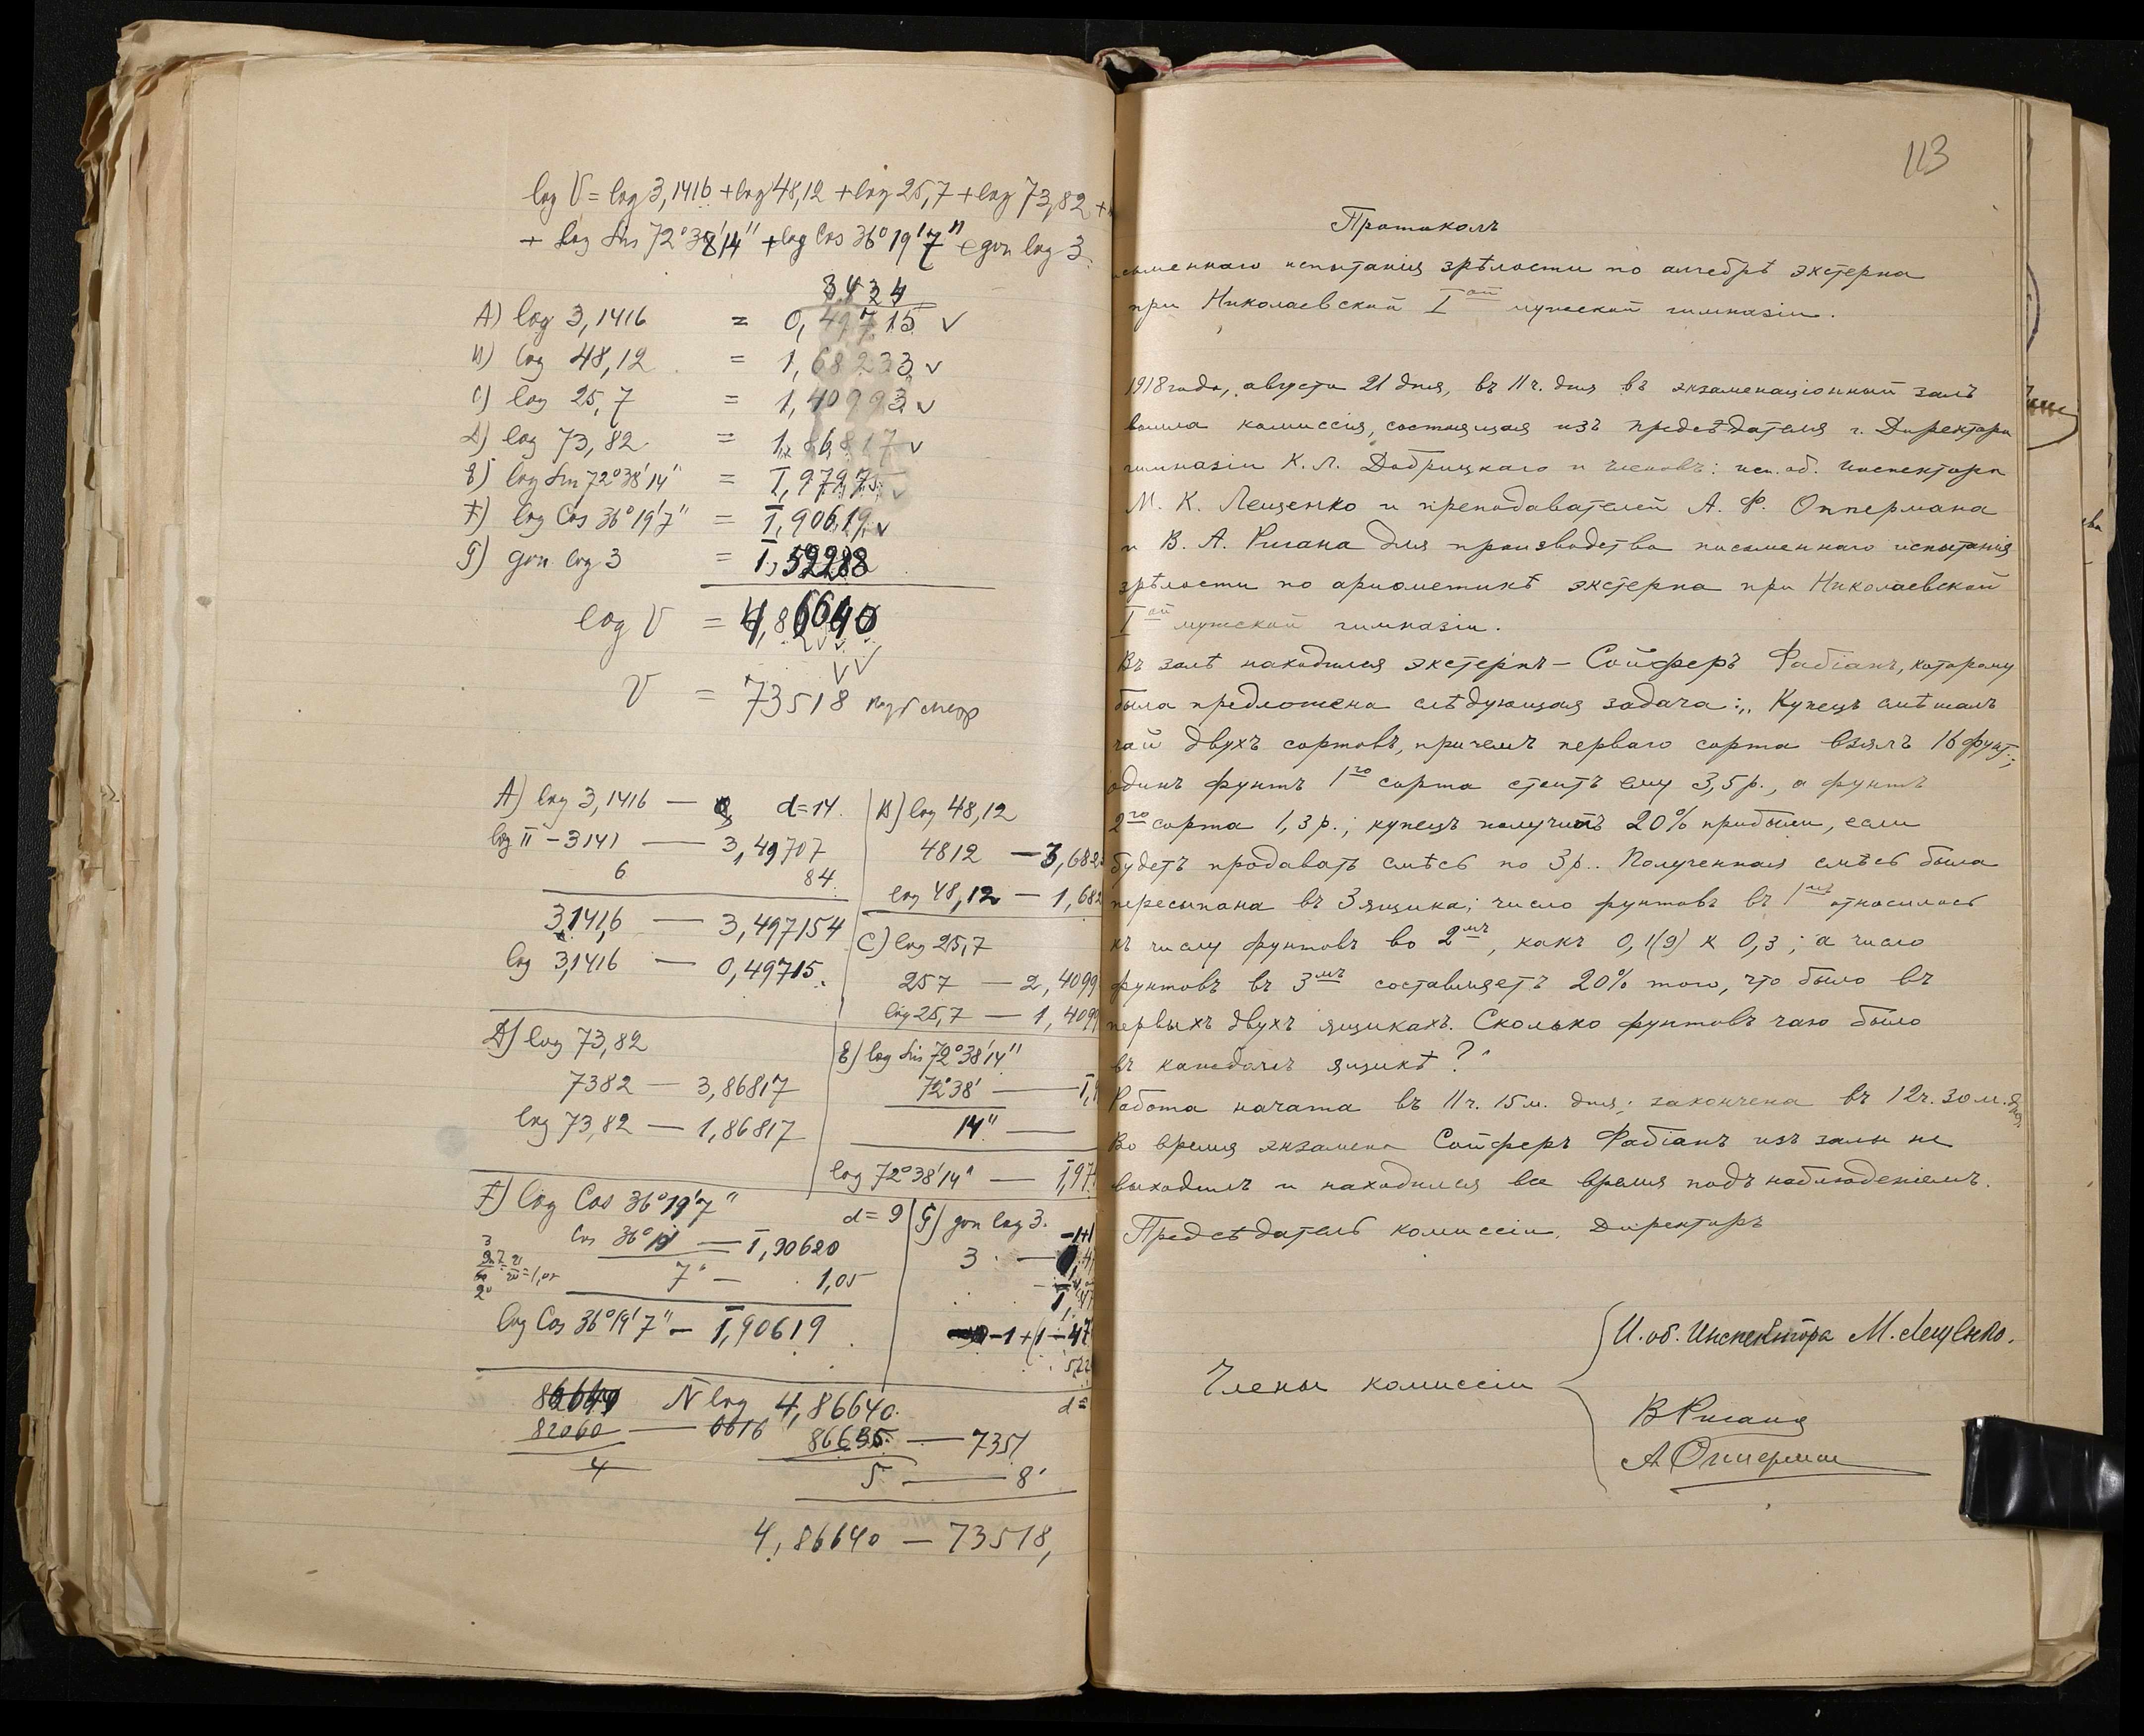 log V = log 3,1416 + log 48,12 + log 25,7 + log 73,82 +
+ log Sin 72°38'14" + log Cos 36°19'7" + доп log 3
3434
A) log 3,1416 = 0,49715 ✓
B) log 48,12 = 1,68233 ✓
C) log 25,7 = 1,40993 ✓
D) log 73,82 = 1,86817 ✓
E) log Sin 72°38'14" = 1̅,97975 ✓
F) log Cos 36°19'7" = 1̅,90619 ✓
G) доп log 3 = 1̅,52288
log V = 4,86640
V = 73518 куб
A) log 3,1416 — d=14.
log π - 3141 — 3,49707
6 84
3,1416 — 3,497154
log 3,1416 — 0,49715.
B) log 48,12
4812 — 3,682
log 48,12 — 1,682
C) log 25,7
257 — 2,4099
log 25,7 — 1,4099
D) log 73,82
7382 — 3,86817
log 73,82 — 1,86817
E) log Sin 72°38'14"
72°38' — 1̅,9
14" —
log 72°38'14" — 1̅,97
F) log Cos 36°19'7" d=9
Cos 36°19' — 1̅,90620
7" — 1,05
log Cos 36°19'7" — 1̅,90619
G) доп log 3.
-1+1
3 —
-1+(1-47
N log 4,86640.
82060 — 6616
4
86635 — 7351
5 — 8
4,86640 — 73518,
113
Протоколъ
сьменнаго испытанія зрѣлости по алгебрѣ экстерна
при Николаевской I ой мужской гимназіи.
1918 года, августа 21 дня, въ 11 ч. дня въ экзаменаціонный залъ
вошла комиссія, состоящая изъ предсѣдателя г. Директора
гимназіи К. Л. Добрицкаго и членовъ: исп. об. инспектора
М. К. Лещенко и преподавателей А. Ф. Оппермана
и В. А. Ригана для производства письменнаго испытанія
зрѣлости по ариѳметикѣ экстерна при Николаевской
I ой мужской гимназіи.
Въ залѣ находился экстернъ - Сойферъ Фабіанъ, которому
была предложена слѣдующая задача: „Купецъ смѣшалъ
чай двухъ сортовъ, причемъ перваго сорта взялъ 16 фунт.;
одинъ фунтъ 1го сорта стоитъ ему 3,5 р., а фунтъ
2го сорта 1,3 р.; купецъ получитъ 20% прибыли, если
будетъ продавать смѣсь по 3 р.. Полученная смѣсь была
пересыпана въ 3 ящика; число фунтовъ въ 1мъ относилось
къ числу фунтовъ во 2мъ, какъ 0,1(9) к 0,3; а число
фунтовъ въ 3мъ составляетъ 20% того, что было въ
первыхъ двухъ ящикахъ. Сколько фунтовъ чаю было
въ каждомъ ящикѣ?"
Работа начата въ 11 ч. 15 м. дня; закончена въ 12 ч. 30 м. дня
Во время экзамена Сойферъ Фабіанъ изъ залы не
выходилъ и находился все время подъ наблюденіемъ.
Предсѣдатель комиссіи, Директоръ
Члены комиссіи
И. об. Инспектора М. Лещенко.
В Ригана
А Опперман